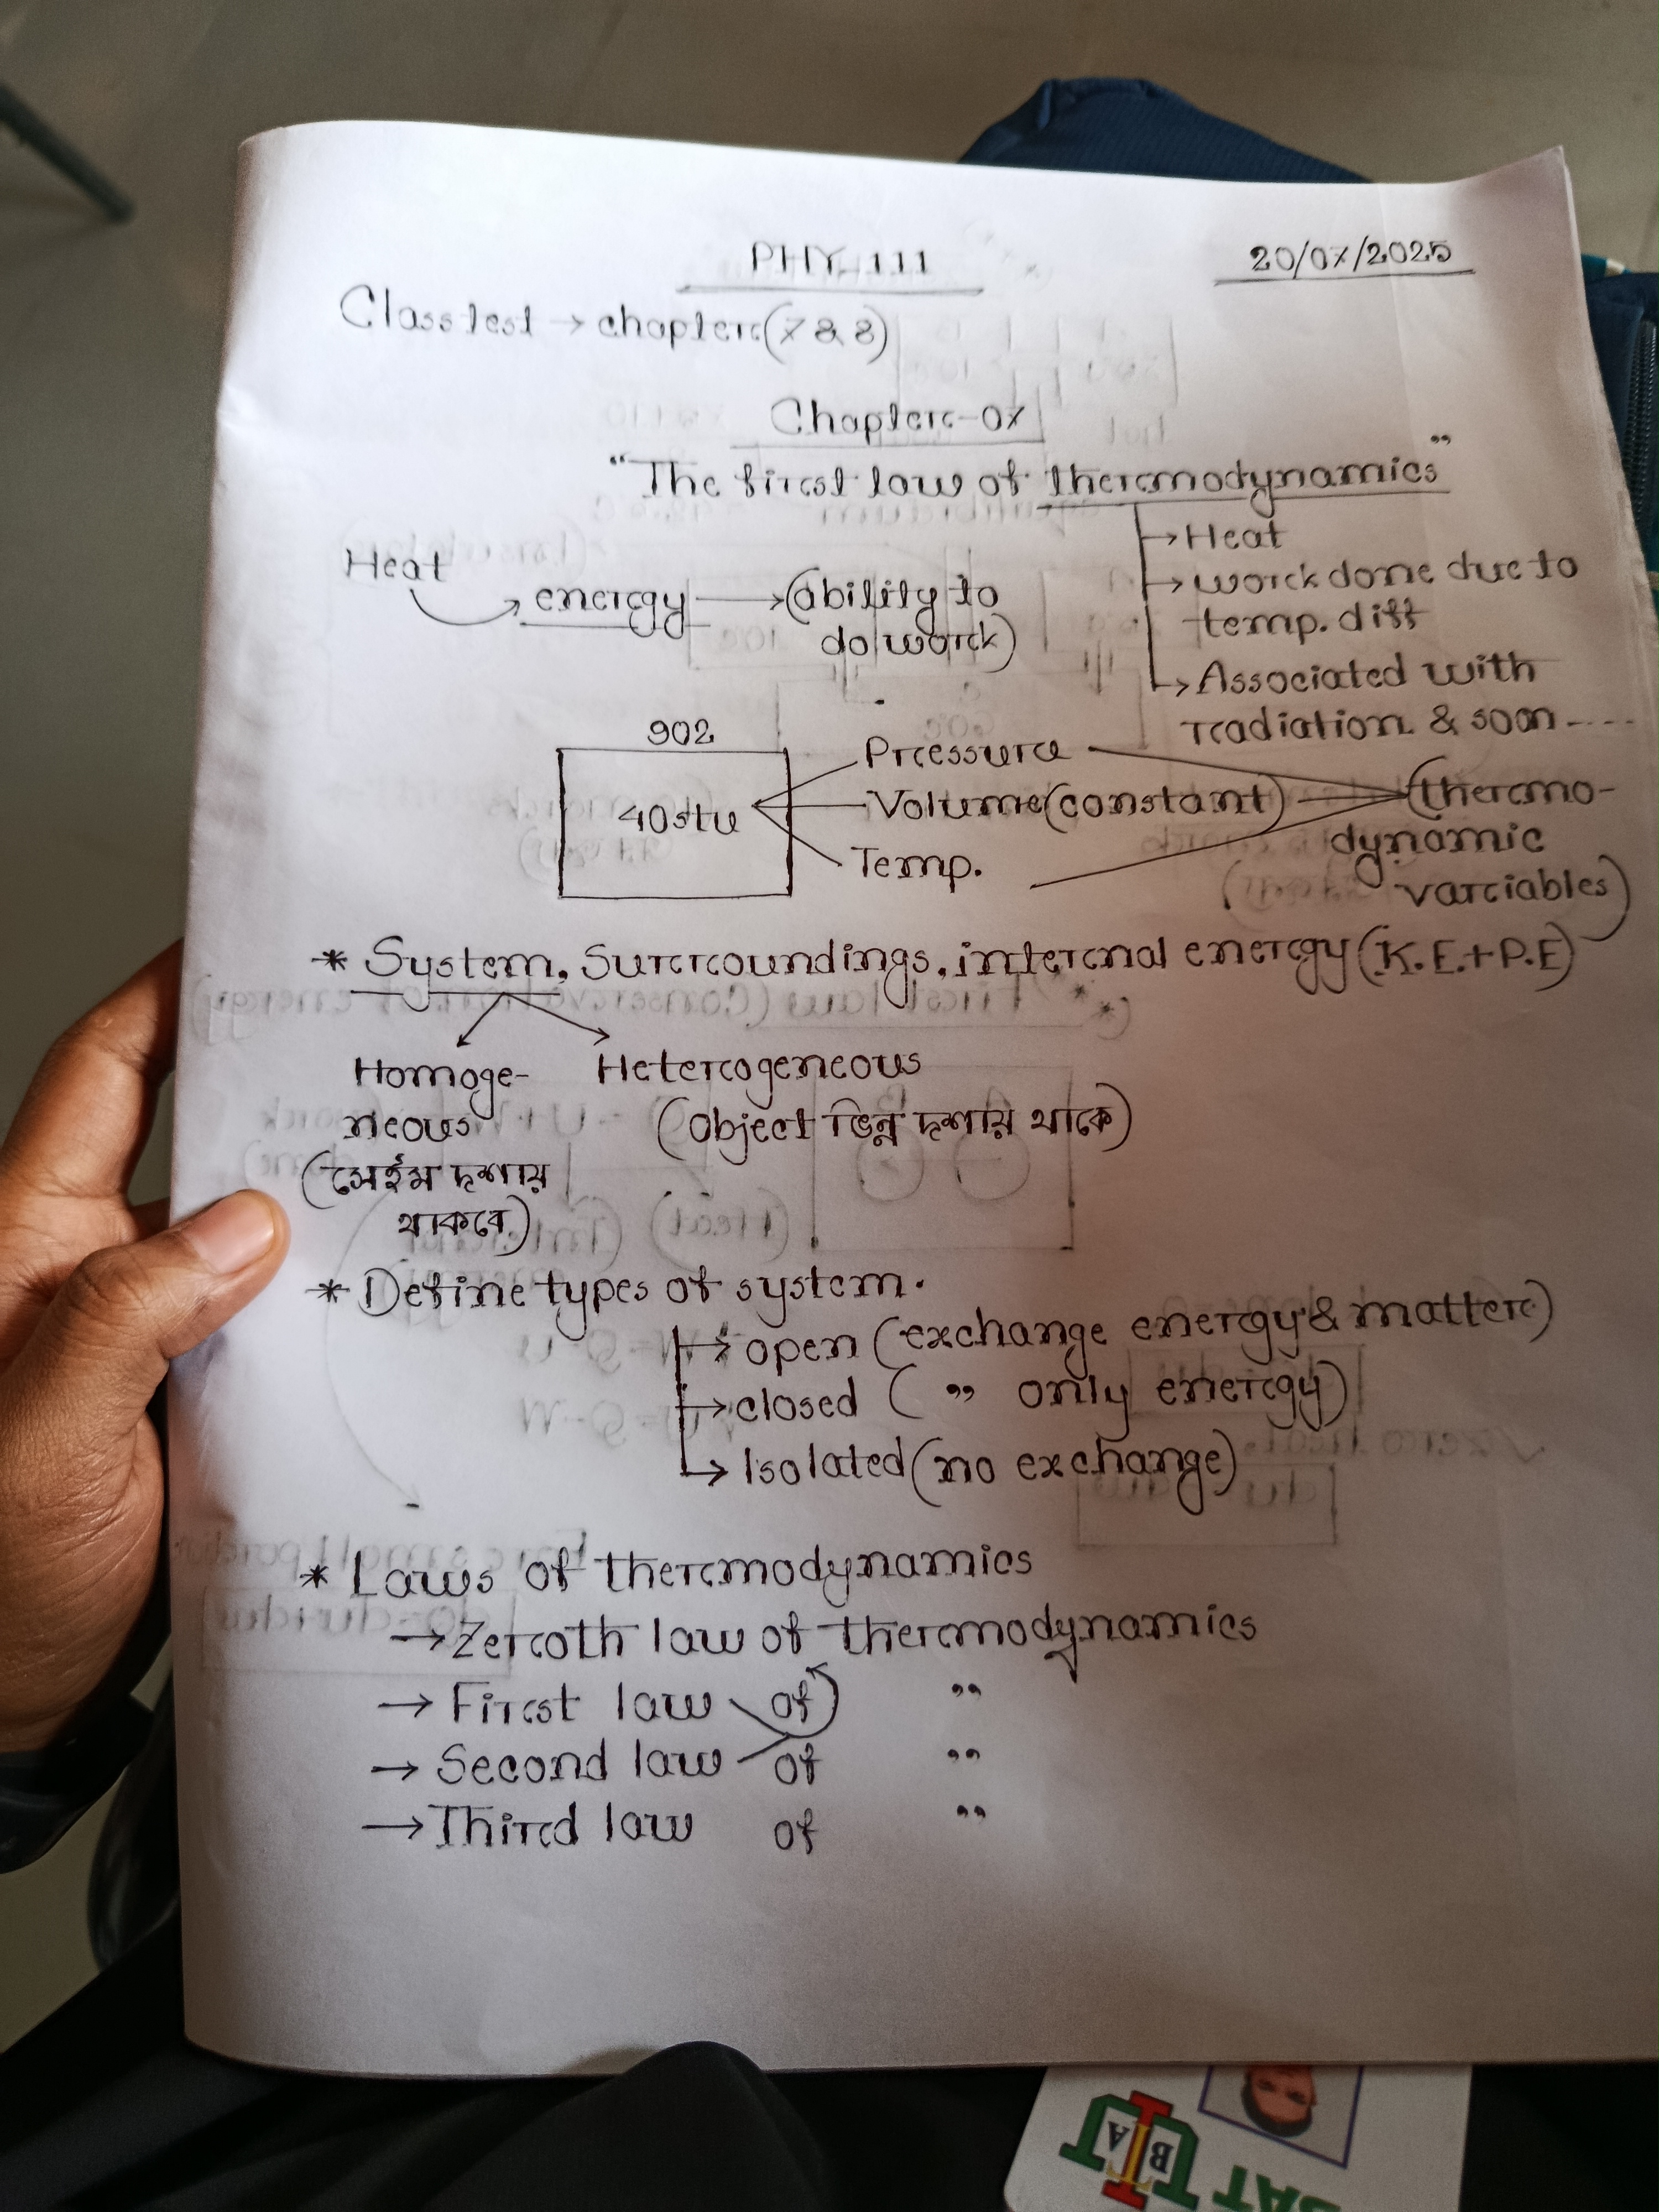 PHY-111
20/07/2025
Class test → chapter (7 & 8)
Chapter-07
"The first law of thermodynamics"
→ Heat
→ work done due to
temp. diff
→ Associated with
radiation & soon ----
Heat
energy → (ability to
do work)
902
40stu
Pressure
Volume (constant)
Temp.
(thermo-
dynamic
variables)
* System, Surroundings, internal energy (K.E.+P.E)
Homoge-
neous
(সেইম দশায়
থাকবে)
Heterogeneous
(object ভিন্ন দশায় থাকে)
* Define types of system.
→ open (exchange energy & matter)
→ closed ( " only energy)
→ Isolated (no exchange)
* Laws of thermodynamics
→ Zeroth law of thermodynamics
→ First law of "
→ Second law of "
→ Third law of "